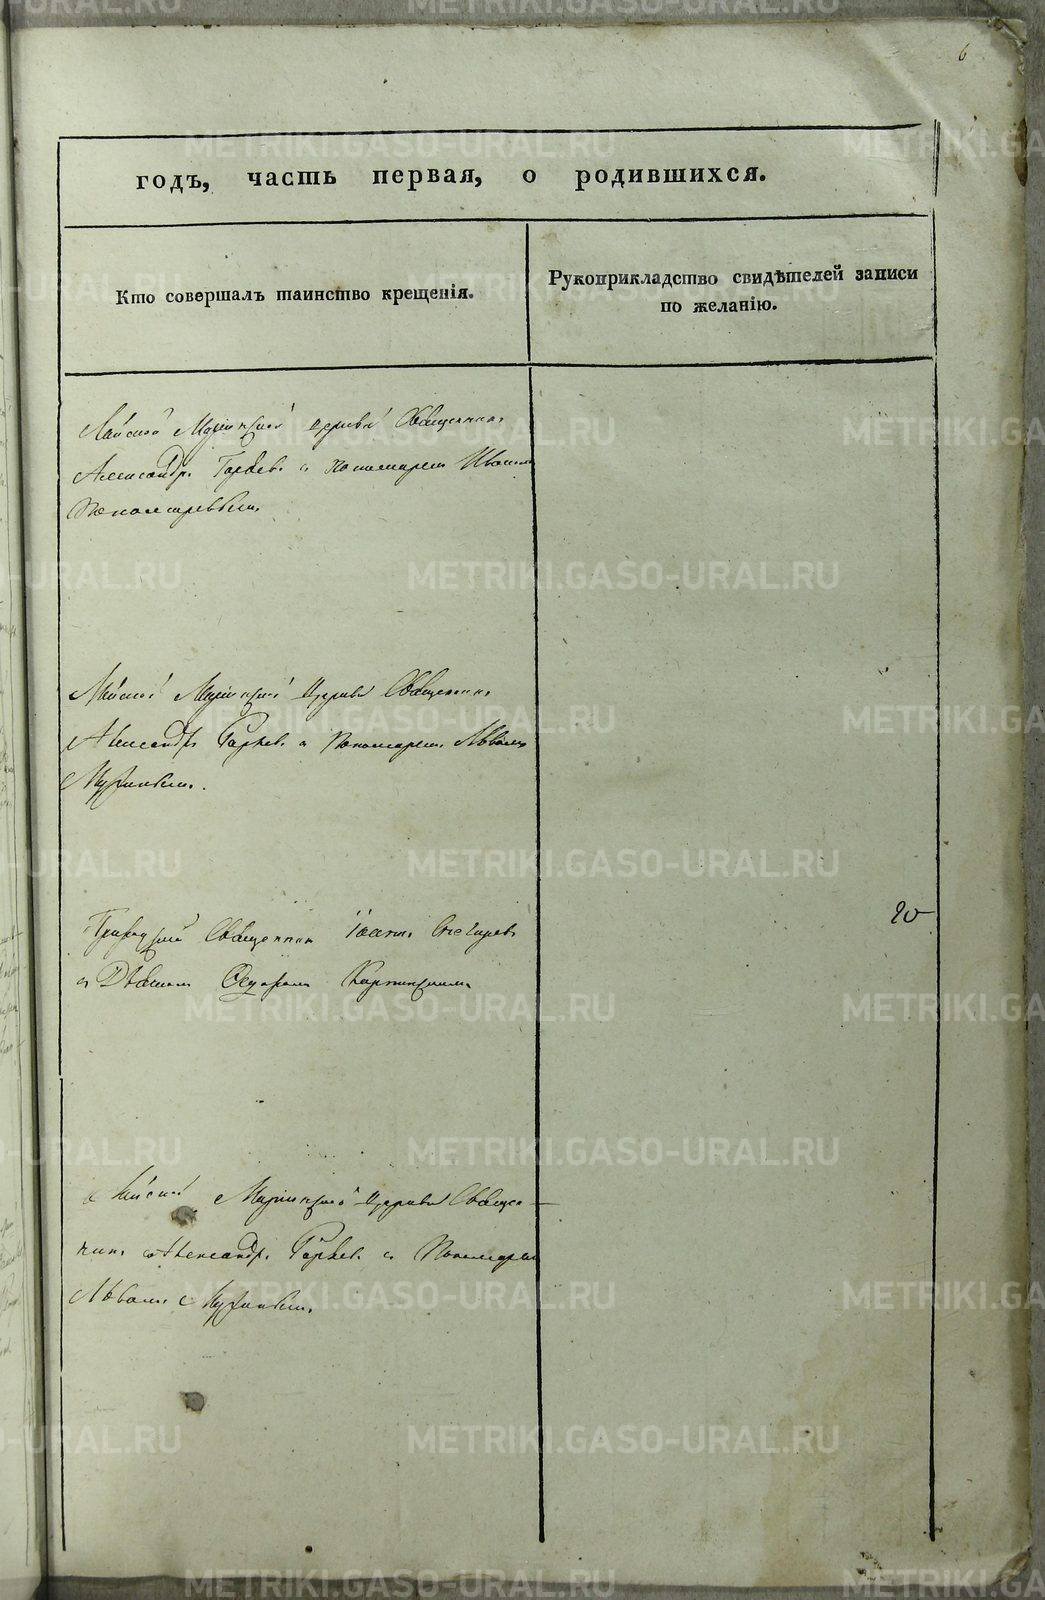 6
годъ, часть первая, о родившихся.
Кто совершалъ таинство крещенія.
Рукоприкладство свидѣтелей записи
по желанію.
Лайской Маріинской Церкви Священникъ
Александръ Горбев. с Пономаремъ Иваномъ
Пономаревымъ
Лайской Маріинской Церкви Священникъ
Александръ с Пономаремъ Львомъ
Священникъ Іоаннъ Снегиревъ
с Дьякономъ Федоромъ Карпинскимъ
20
Лайской Маріинской Церкви Священ
никъ Александръ с Пономаремъ
Львомъ
METRIKI.GASO-URAL.RU